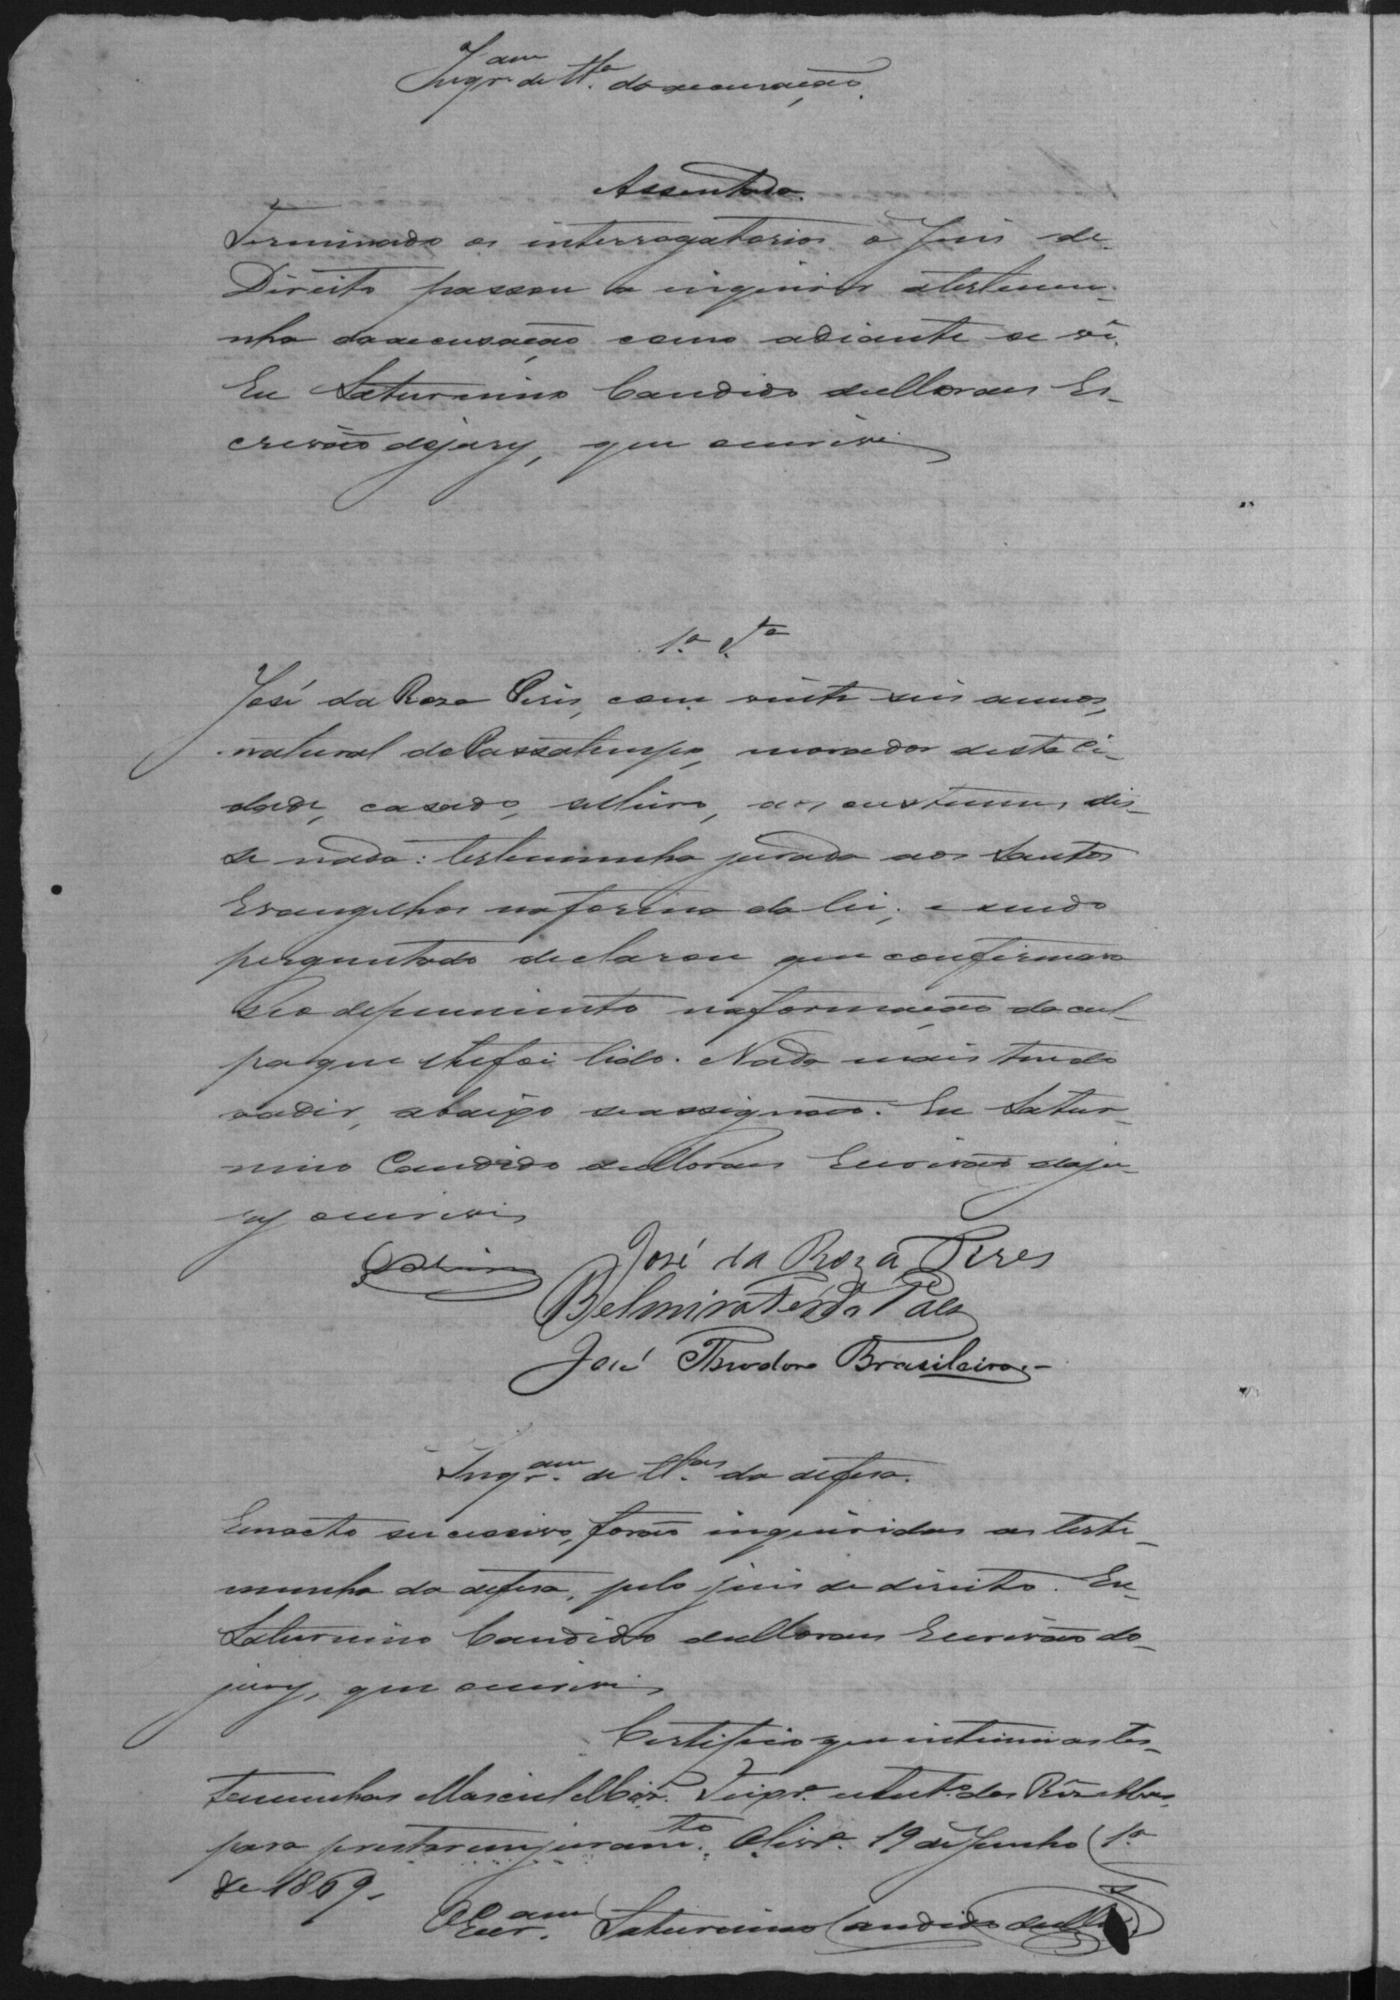 Inqr.am de tt.a da accusação.
Assentada.
Terminado os interrogatorios o Juis de
Direito passou a inquirir a testemu-
nha da accusação como adiante se vê.
Eu Saturnino Candido de Moraes Es-
crivão do jury, que escrevi
1.a T.a
José da Roza Peris, com vinte seis annos,
natural do Passatempo, morador desta ci-
dade, casado, selleiro, aos custumes dis-
se nada: testemunha jurada aos Santos
Evangelhos na forma da lei; e sendo
perguntado declarou que confirmava
seo depuimento na formação da cul-
pa que lhe foi lido. Nada mais tendo
a dir, abaixo se assignão. Eu Satur-
nino Candido de Moraes Escrivão do ju-
ry escrevi
José da Roza Pires
Belmiro Paes
José Theodoro Brasileiro.
Inqr.am de tt.as da defesa.
Em acto sucessivo, forão inquiridas as teste-
munha da defesa, pelo juis de direito. Eu
Saturnino Candido de Moraes Escrivão do
jury, que escrevi
Certifico que intimei as tes-
temunhas
para prestarem juram.to. Olivr.a 19 de Junho
de 1869.
O Escr.am Saturnino Candido de M.